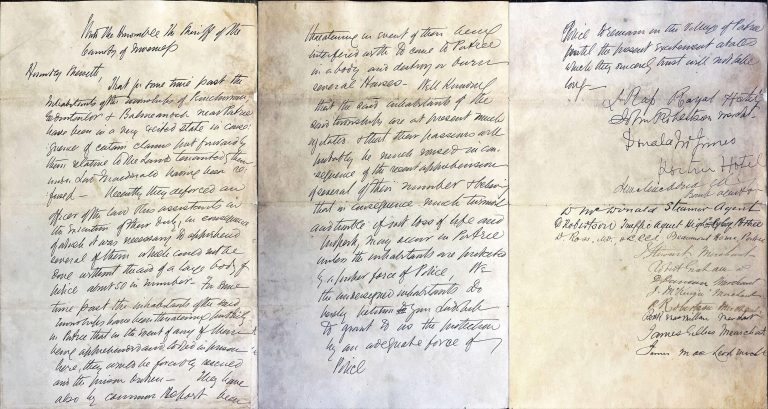 Unto the Honorable The Sheriff of the
County of Inverness
Humbly Sheweth,
That for some time past the
inhabitants of the townships of Penchorran,
& Balmeanach near Portree
have been in a very excited state in conse-
quence of certain claims put forward by
them relative to the lands tenanted by them
under Lord Macdonald having been re-
fused — Recently they deforced an
officer of the law & his assistants in
the execution of their duty, in consequence
of which it was necessary to apprehend
several of them which could not be
done without the aid of a large body of
Police about 50 in number. For some
time past the inhabitants of the said
townships have been threatening publicly
in Portree that in the event of any of their
being apprehended and lodged in prison
here, they would be forcibly rescued
and the prison broken — They have
also by common Report been
threatening in event of them being
interfered with to come to Portree
in a body and destroy or burn
several Houses — Well knowing
that the said inhabitants of the
said townships are at present much
agitated & that their passions will
probably be much roused in con-
sequence of the recent apprehension
of several of their number & believing
that in consequence much turmoil
and if not loss of life and
property may occur in Portree
unless the inhabitants are protected
by a further force of Police, We
the undersigned inhabitants do
humbly petition your Lordship
to grant to us the protection
by an adequate force of
Police
Police to remain in the Village of Portree
until the present excitement abates
which they sincerely trust will not be
long —
Royal Hotel
John Robertson Mercht.
Donald McInnes
Portree Hotel
Bank
D. McDonald Steamer Agent
Robertson Traffic Agent
D. Ross, Beaumont Home, Portree
Stewart Merchant
Robert Graham
Merchant
Merchant
Robertson Merchant
Merchant
James Gillies Merchant
James Mac